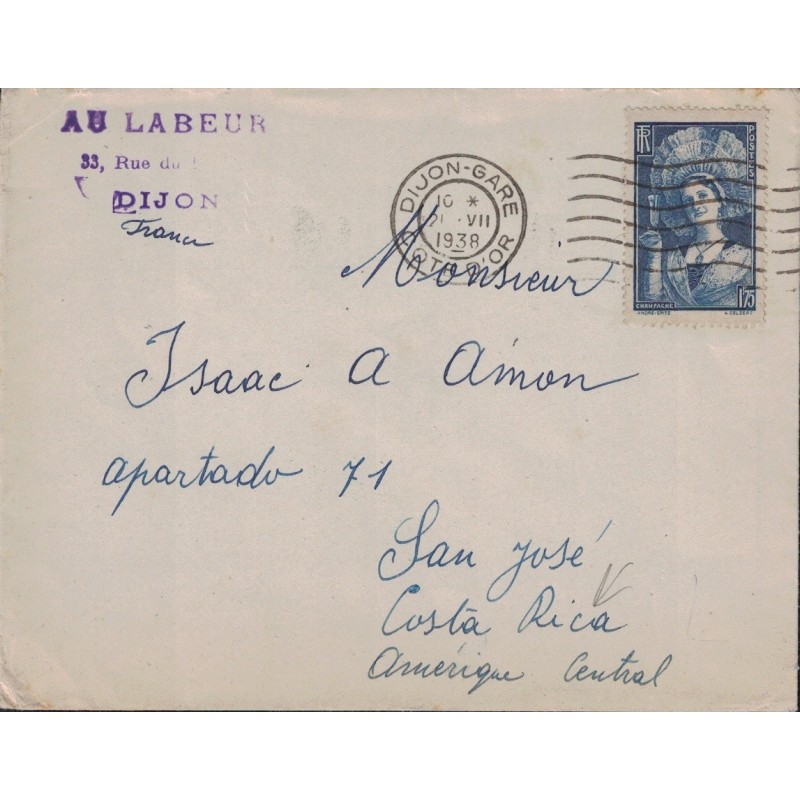 AU LABEUR
33, Rue du
DIJON
France
DIJON-GARE
10 *
VII
1938
COTE D'OR
RF
POSTES
CHAMPAGNE
1F75
Monsieur
Isaac A Amon
apartado 71
San José
Costa Rica
Amérique Central